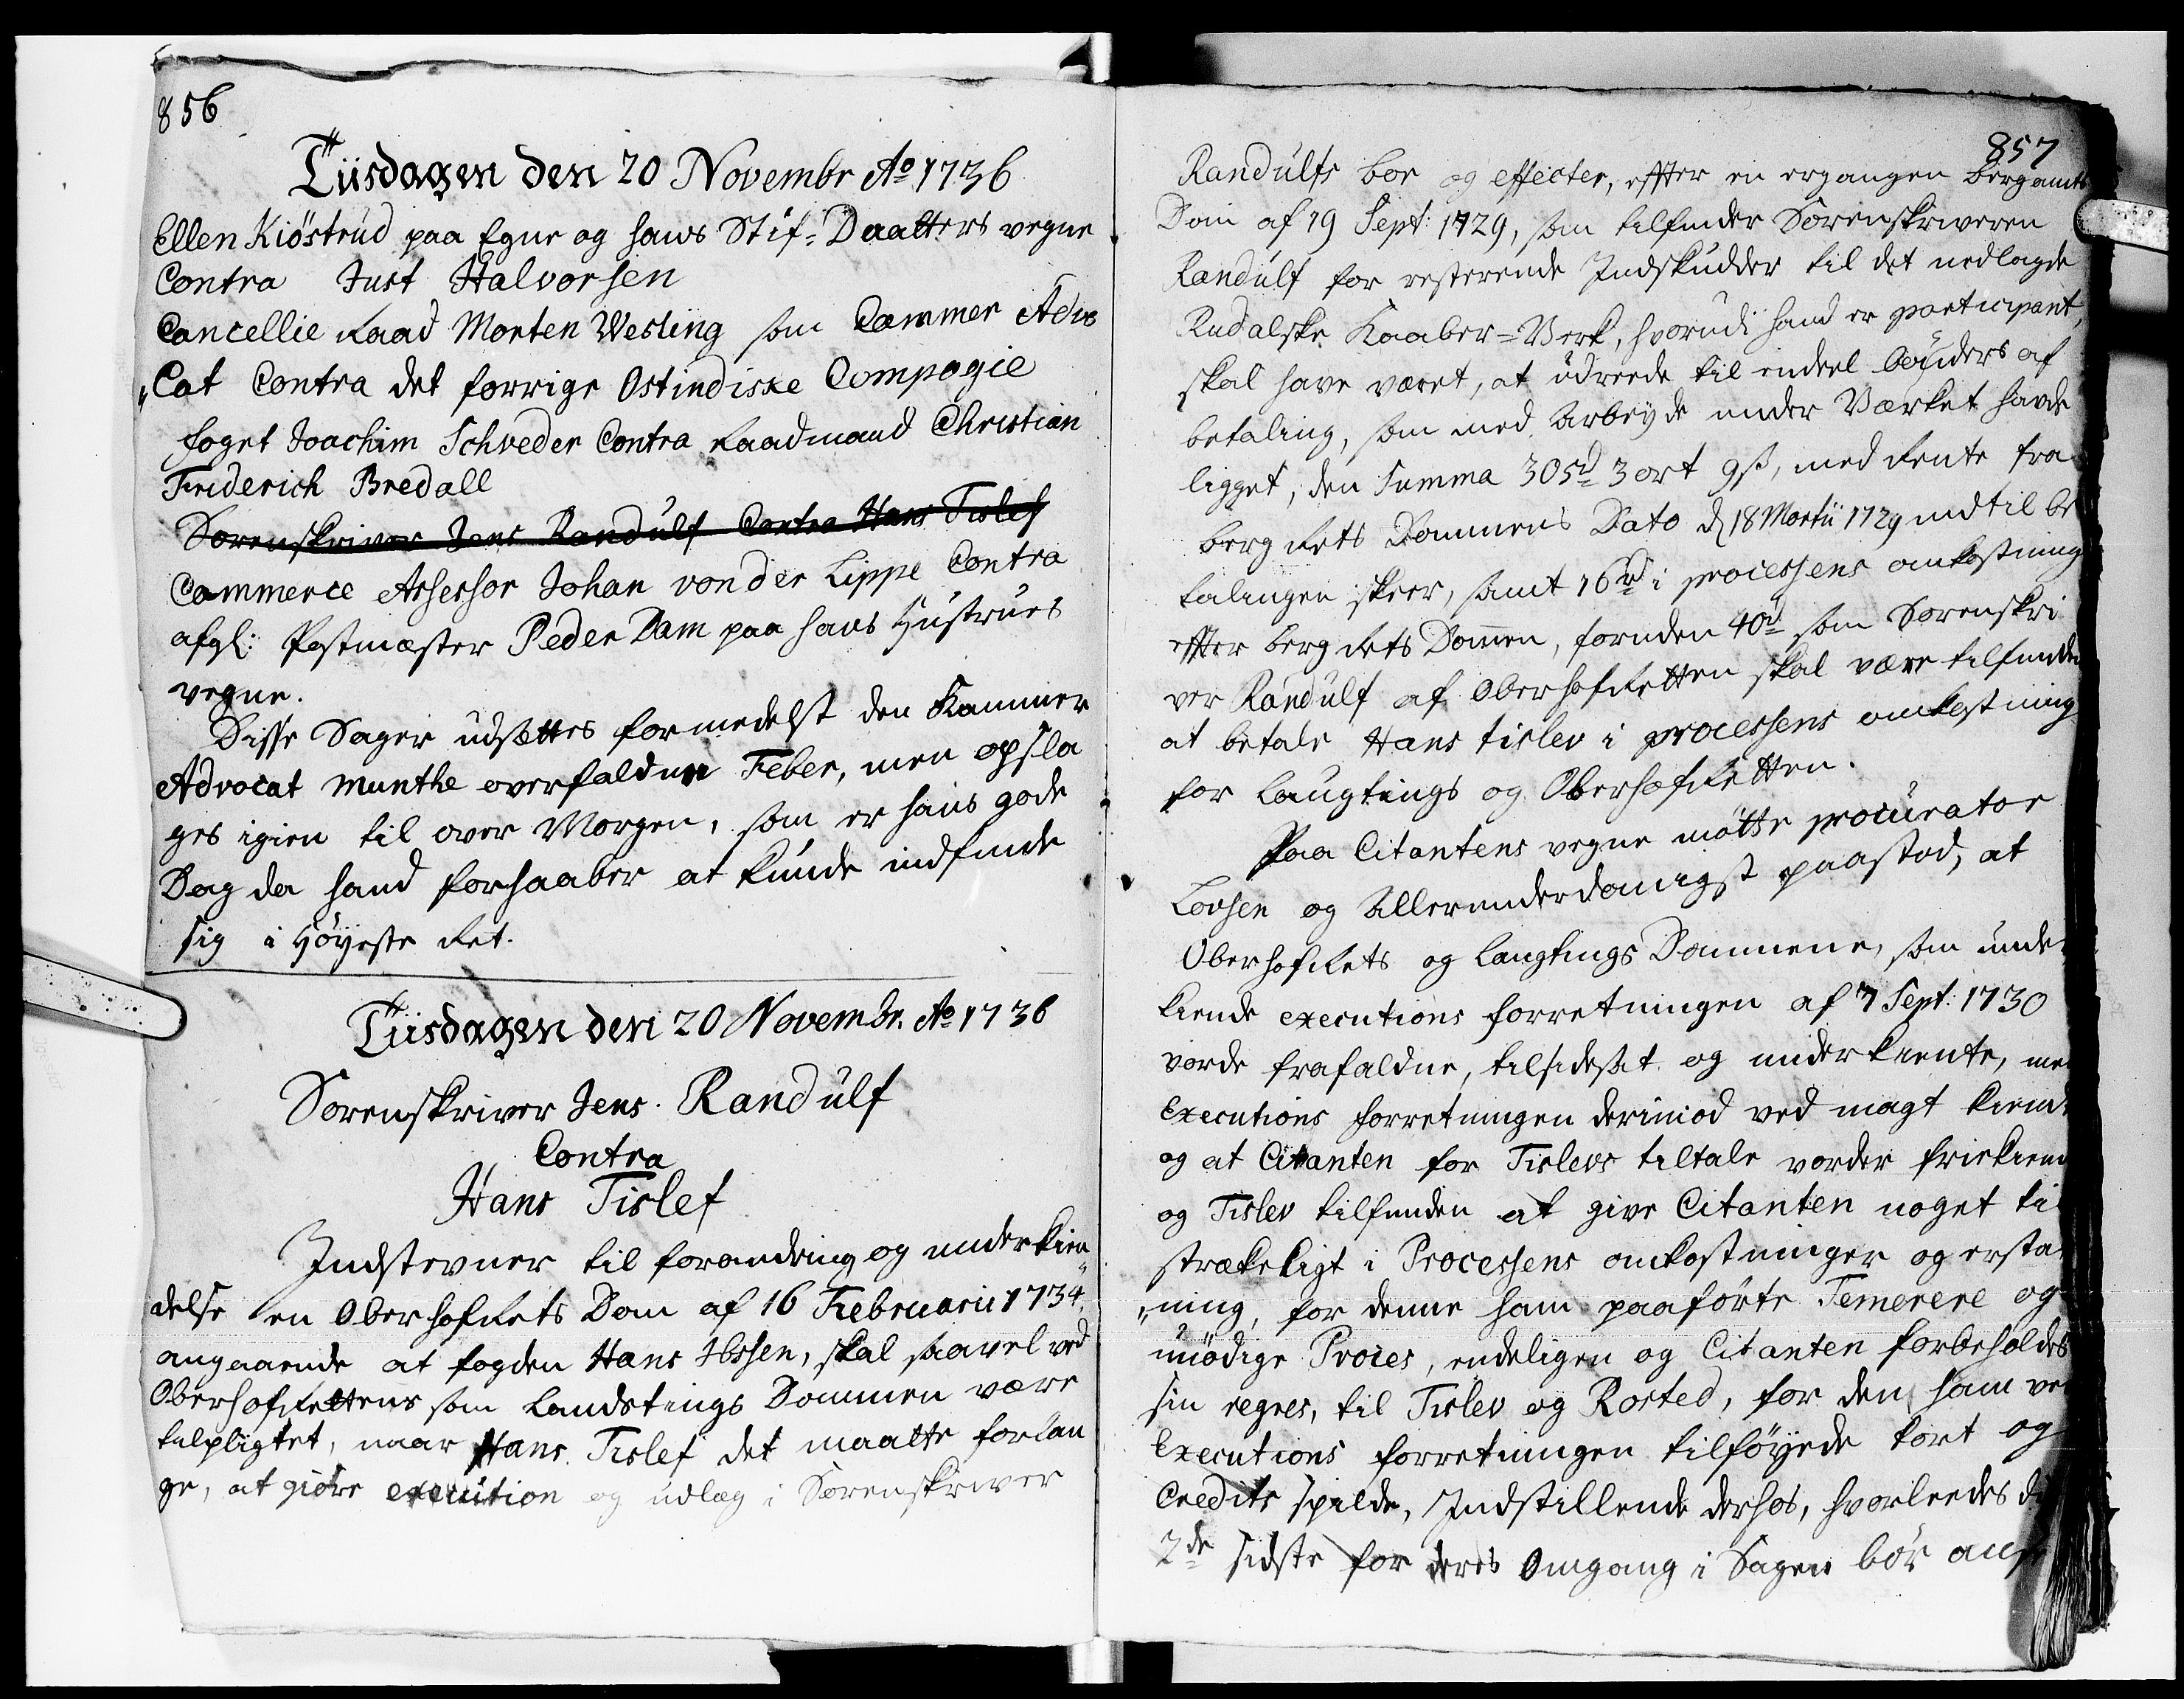 856
Tiisdagen den 20 Novembr Ao 1736
Ellen Kiöstrud paa Egne og hans Stif-Daatters vegne
Contra Just Halvorsen
Cancellie Raad Morten Wesling som Cammer Advo
"Cat Contra det forrige Ostindiske Compagie
foget Joachim Schveder Contra Raadmand Christian
Friderich Bredall
Sorenskriver Jens Randulf Contra Hans Tislef
Commerce Assessor Johan von der Lippe Contra
afgl: Postmæster Peder Dam paa hans Hustrues
vegne.
Disse Sager udsættes formedelst den Kammer
Advocat Munthe overfaldne Feber, men opsla
ges igien til over Morgen, som er hans gode
Dag da hand forhaaber at kunde indfinde
sig i Höyeste Ret.
Tiisdagen den 20 Novembr. Ao 1736
Sorenskriver Jens Randulf
Contra
Hans Tislef
Indstevner til forandring og underkien
delse en OberhofRets Dom af 16 Februarii 1734,
angaaende at fogden Hans Ibsen, skal saavel ved
OberhofRettens som Landstings Dommen være
tilpligtet, naar Hans Tislef det maatte forlan
ge, at giöre execution og udlæg i Sorenskriver
857
Randulfs boe og effecter, effter en ergangen bergamts
Dom af 19 Sept: 1729, som tilfinder Sorenskriveren
Randulf for resterende Indskudder til det nedlagde
Rudalske Kaaber-Verk, hvorudi hand er participant,
skal have været, at udreede til endeel bönders af
betaling, som med Arbeyde under Værket havde
ligget, den Summa 305rd 3 ort 9s, med Rente fra
berg Rets Dommens Dato d 18 Martii 1729 indtil be
talingen skeer, samt 16rd i processens omkostning
effter berg Rets Domen, foruden 40rd som Sorenskri
ver Randulf af OberhofRetten skal være tilfunden
at betale Hans Tislev i processens omkostning
for Laugtings og OberhofRetten.
Paa Citantens vegne mötte procurator
Lovsen og Allerunderdanigst paastod, at
OberhofRets og Laugtings Dommene, som under
kiende executions forretningen af 7 Sept: 1730
vorde frafaldne, tilsidesat og underkiente, men
Executions forretningen derimod ved magt kiendt
og at Citanten for Tislevs tiltale vorder friekiendt
og Tislev tilfunden at give Citanten noget til
strækeligt i Processens omkostninger og erstat
"ning, for denne ham paaförte Temerere og
unödige Proces, endeligen og Citanten forbeholdes
sin regres, til Tislev og Rosted, for den ham ved
Executions forretningen tilföyede tort og
Credits spilde, Indstillende derhos, hvorleedes de
2de sidste for deres Omgang i Sagen bör anse